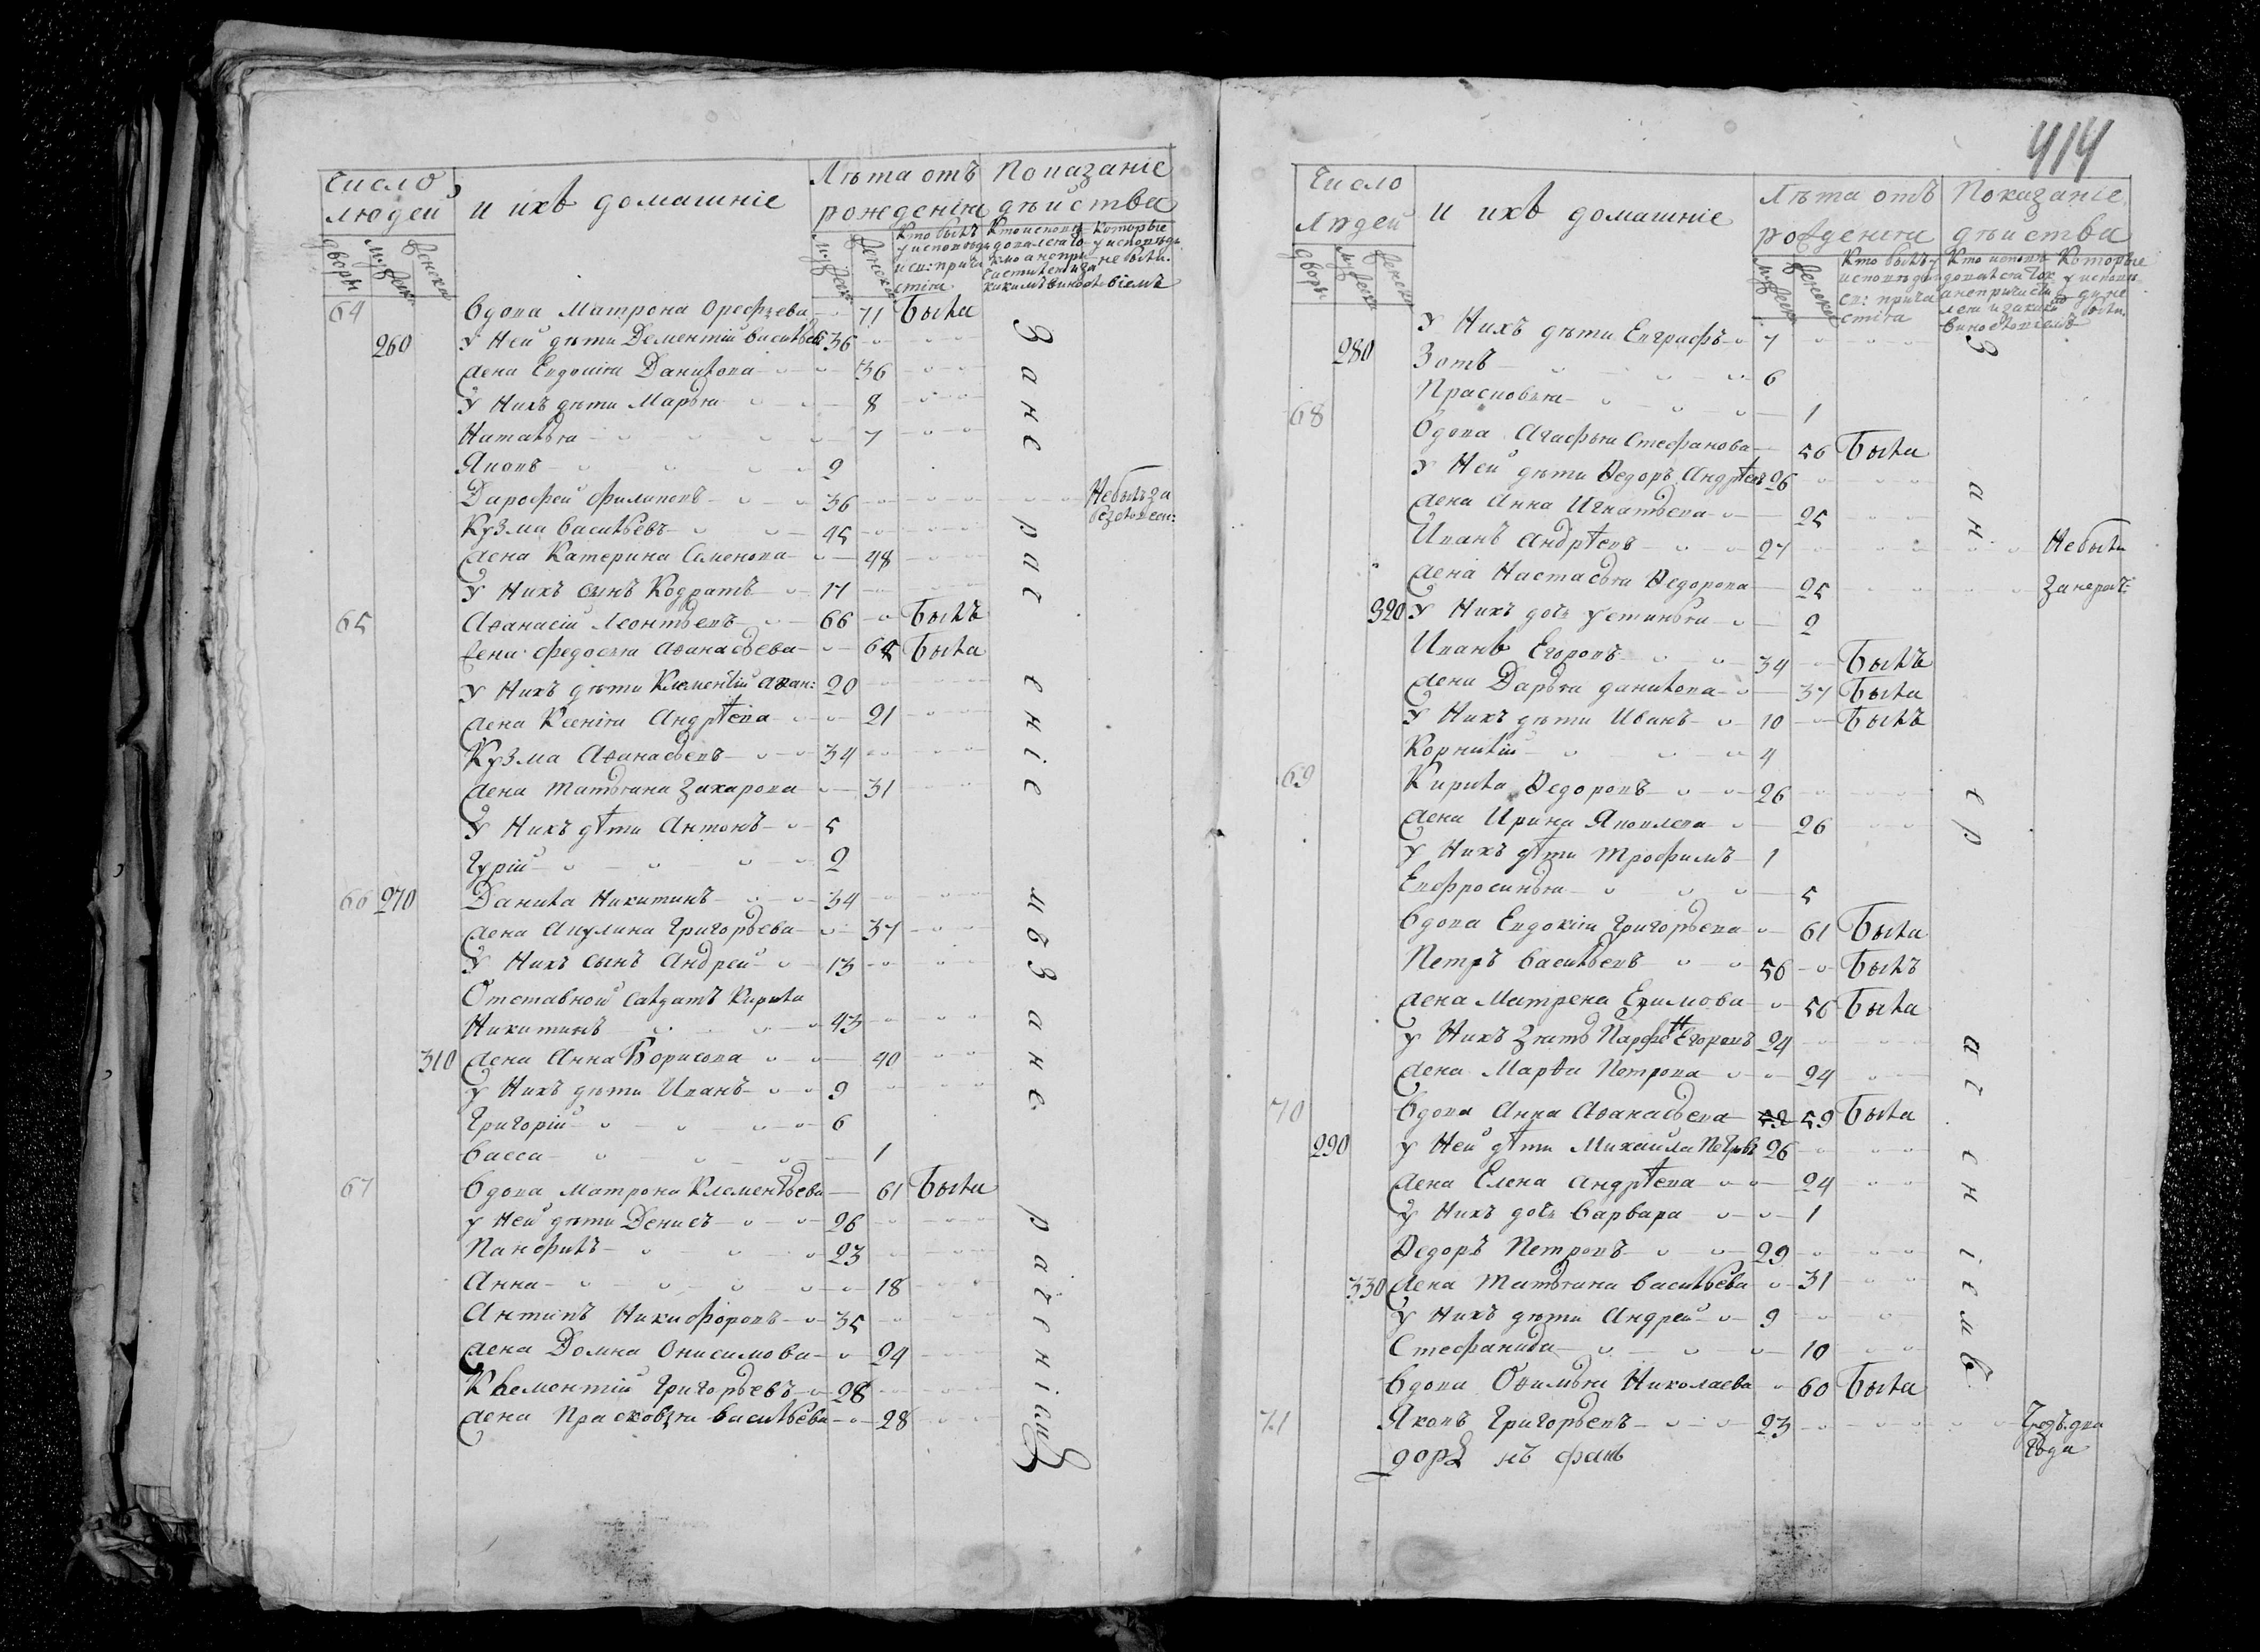 Число людей
и ихъ домашніе
Лѣта отъ рожденія
Показаніе дѣиства
дворы
муж
женска
Кто былъ у исповѣди и св: прича стія
Которые у исповѣди не были.
64 вдова Матрона Орефьева 71 Была
260 У Ней дѣти Дементіи василье 36
жена Евдокія Данилова 36
У Нихъ дѣти Марья 8
Наталья 7
Яковъ 2
Дарофей филиповъ 36 Небылъ за
Кузма васильевъ 45
жена Катерина Семенова 48
У Нихъ сынъ Кодратъ 17
65 Аѳанасіи Леонтьевъ 66 Былъ
жена федосья Аѳанасьева 65 Была
У Нихъ дѣти Клементіи Аѳан: 20
жена Ксенія Андрѣева 21
Кузма Аѳанасьевъ 34
жена Татьяна Захарова 31
У Нихъ дѣти Антонъ 5
Гурій 2
66 270 Данила Никитинъ 34
жена Акулина Григорьева 37
У Нихъ сынъ Андреи 13
Отставной салдатъ Кирила
Никитинъ 43
310 жена Анна Борисова 40
у Нихъ дѣти Иванъ 9
Григорій 6
васса 1
67 вдова Матрона Клементьева 61 Была
у Ней дѣти Денисъ 26
Панфилъ 23
Анна 18
Антипъ Никифоровъ 35
жена Домна Онисимова 24
Клементіи Григорьевъ 28
жена Прасковья васильева 28
За не рад еніе
и за не радѣніи
414
Число Людей
и ихъ домашніе
Лѣта отъ рожденія
Показаніе дѣиства
дворы
муж
женск
У Нихъ дѣти Евграфъ 7
280 Зотъ 6
Прасковья 1
68 вдова Агафья Стефанова 56 Была
У Ней дѣти Ѳедоръ Андрѣевъ 26
жена Анна Игнатьева 25
Иванъ Андрѣевъ 27 Небыли
жена Настасья Ѳедорова 25 занерач:
320 У Нихъ дочь Устинья 2
Иванъ Егоровъ 34 Былъ
жена Дарья данилова 37 Была
У Нихъ дѣти Иванъ 10 Былъ
Корнилій 4
69 Кирила Ѳедоровъ 26
жена Ирина Яковлева 26
У Нихъ дѣти Трофимъ 1
Евфросинья 5
вдова Евдокія Григорьева 61 Была
Петръ васильевъ 56 Былъ
жена Матрена Ефимова 56 Была
у Нихъ Зять Парфе Егоровъ 24
жена Марѳа Петрова 24
70 вдова Анна Аѳанасьева 59 Была
290 у Ней дѣти Михаила Петровъ 26
жена Елена Андрѣева 24
У Нихъ дочь варвара 1
Ѳедоръ Петровъ 29
330 жена Татьяна васильева 31
У Нихъ дѣти Андреи 9
Стефанида 10
вдова Ѳимья Николаева 60 Была
71 Яковъ Григорьевъ 23 два
года
За не р ад ен іемъ